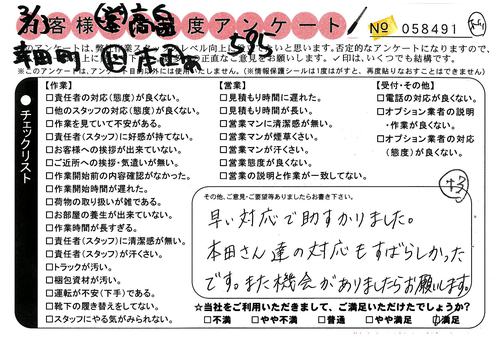 お客様 度アンケート
No 058491
※このアンケートは、アンケート目的以外には使用いたしません。(※情報保護シールは1度がすと、再度貼りなおすことはできません)
チェックリスト
【作業】
□責任者の対応(態度)が良くない。
□他のスタッフの対応(態度)が良くない。
□作業を見ていて不安がある。
□責任者(スタッフ)に好感が持てない。
□お客様への挨拶が出来ていない。
□ご近所への挨拶・気遣いが無い。
□作業開始前の内容確認がなかった。
□作業開始時間が遅れた。
□荷物の取り扱いが雑である。
□お部屋の養生が出来ていない。
□作業時間が長すぎる。
□責任者(スタッフ)に清潔感が無い。
□責任者(スタッフ)が汗くさい。
□トラックが汚い。
□梱包資材が汚い。
□運転が不安(下手)である。
□靴下の履き替えをしてない。
□スタッフにやる気がみられない。
【営業】
□見積もり時間に遅れた。
□見積もり時間が長い。
□営業マンに清潔感が無い。
□営業マンが煙草くさい。
□営業マンが汗くさい。
□営業態度が良くない。
□営業の説明と作業が一致してない。
【受付・その他】
□電話の対応が良くない。
□オプション業者の説明
・作業が良くない。
□オプション業者の対応
(態度)が良くない。
その他、ご意見・ご要望等ありましたらお書き下さい。
早い対応で助すかりました。
本田さん達の対応もすばらしかった
です。また機会がありましたらお願いします。
☆当社をご利用いただきまして、ご満足いただけたでしょうか?
□不満 □やや不満 □普通 □やや満足 □満足